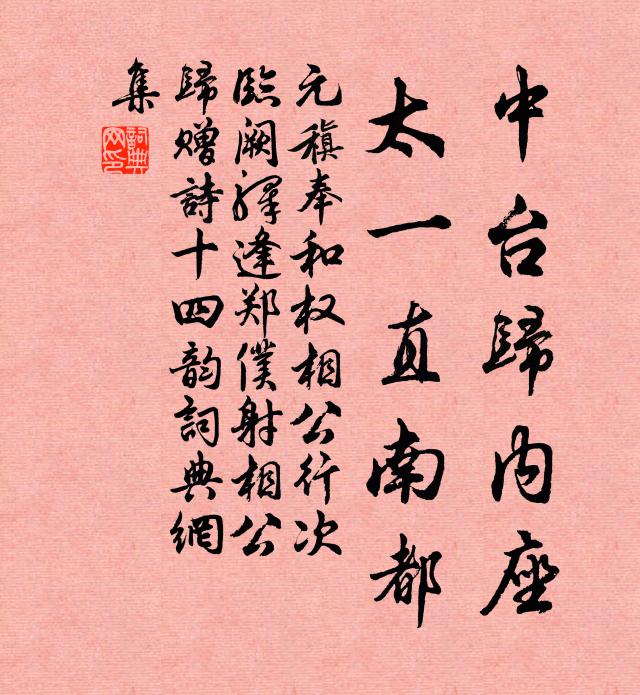 中台歸内座
太一直南都
元稹奉和权相公行次
臨阙驛逢郑僕射相公
歸赠詩十四韵詞典網
集
詞典網印